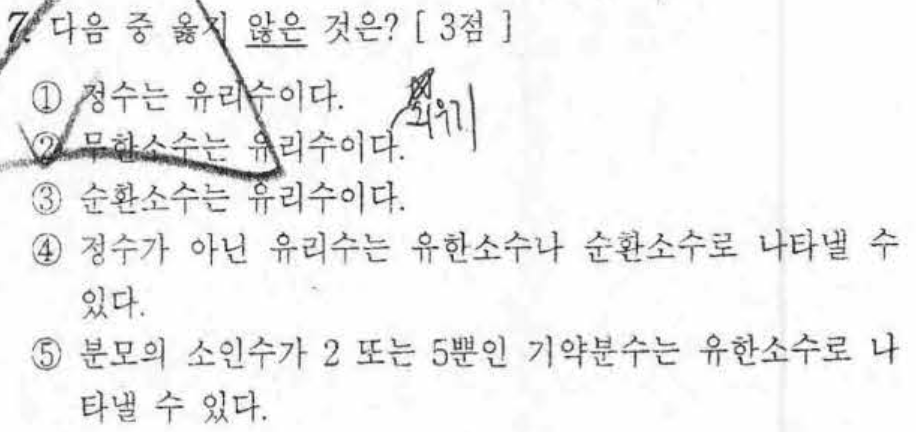 7. 다음 중 옳지 않은 것은? [ 3점 ]
① 정수는 유리수이다.
② 무한소수는 유리수이다. 외우기
③ 순환소수는 유리수이다.
④ 정수가 아닌 유리수는 유한소수나 순환소수로 나타낼 수
있다.
⑤ 분모의 소인수가 2 또는 5뿐인 기약분수는 유한소수로 나
타낼 수 있다.